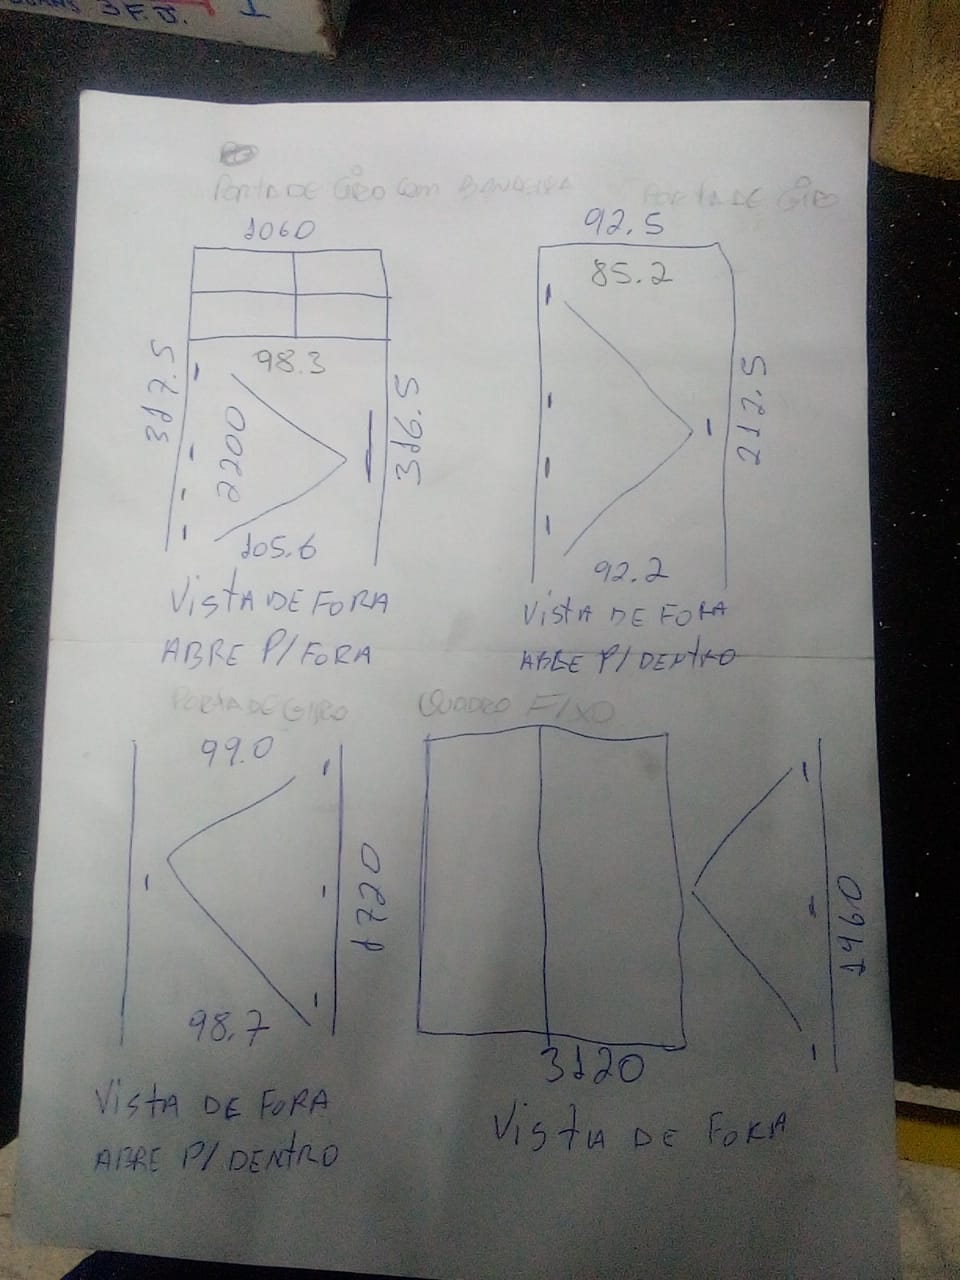 3 F.J. 1
PORTA DE GIRO COM BANDEIRA
1060
317.5
98.3
2200
316.5
105.6
VISTA DE FORA
ABRE P/ FORA
PORTA DE GIRO
92.5
85.2
212.5
92.2
VISTA DE FORA
ABRE P/ DENTRO
PORTA DE GIRO
99.0
1720
98.7
VISTA DE FORA
ABRE P/ DENTRO
QUADRO FIXO
1960
3120
VISTA DE FORA